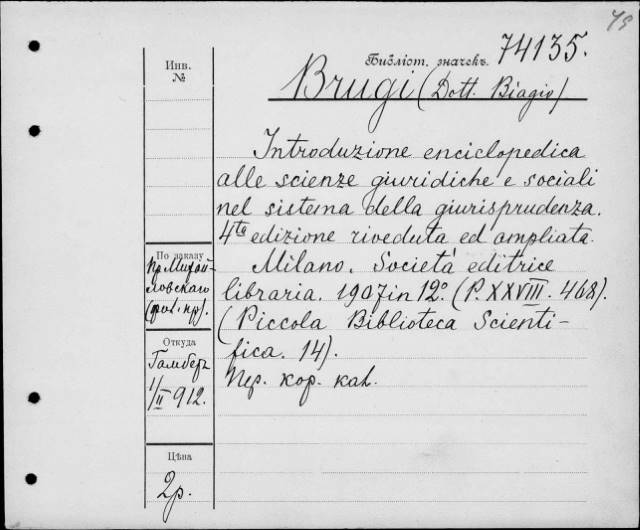 49
Библіот. значекъ. 74135.
Инв.
№
Brugi (Dott. Biagio)
Introduzione enciclopedica
alle scienze giuridiche e sociali
nel sistema della giurisprudenza.
4ta edizione riveduta ed ampliata.
Milano. Società editrice
libraria. 1907 in 12°. (P. XXVIII. 468).
(Piccola Biblioteca Scienti-
fica. 14).
Пер. кор. кал.
По заказу
Пр. Михай-
ловскаго
Откуда
Гамберъ
1/II 912.
Цѣна
2р.